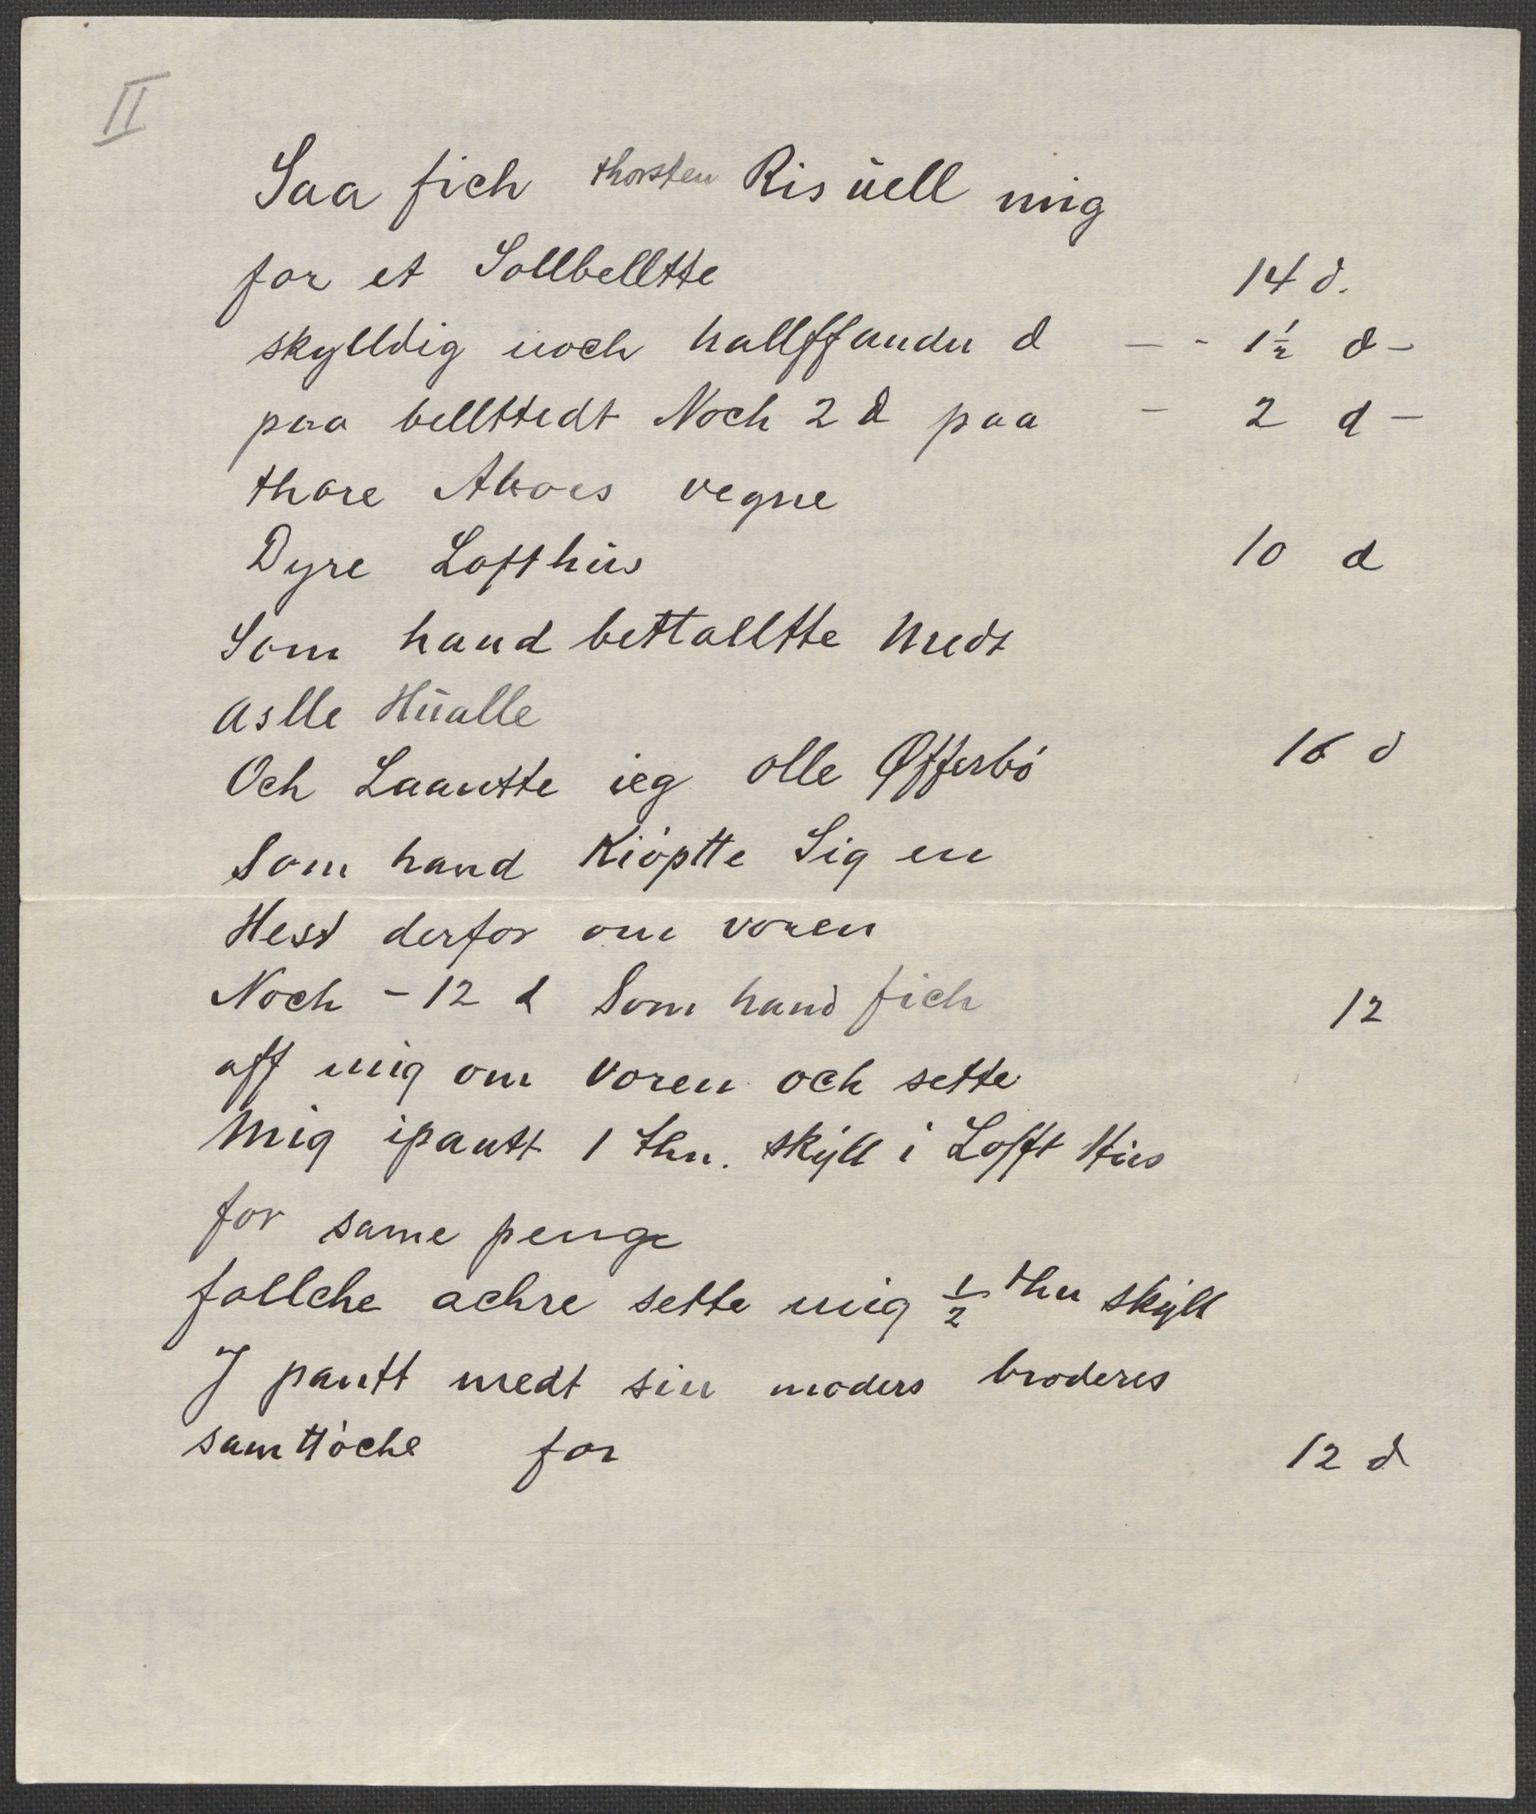 II
Saa fich thorsten Risüell mig
for et Sollbelltte 14 d.
skylldig noch hallffandn d — - 1½ d –
paa bellttedt Noch 2 d paa – 2 d –
thore Aboes vegne
Dyre Lofthüs 10 d
Som hand bettalltte Medt
aslle Hüalle
Och Laantte ieg olle Øfferbó 16 d
Som hand Kióptte Sig en
Hest derfor om voren
Noch – 12 d Som hand fich 12
aff mig om voren och sette
Mig ipantt 1 thn. skÿll i Lofft Hüs
for same penge
follche achre sette mig ½ thn skÿll
J pantt medt sin moders broderes
samttóche for 12 d